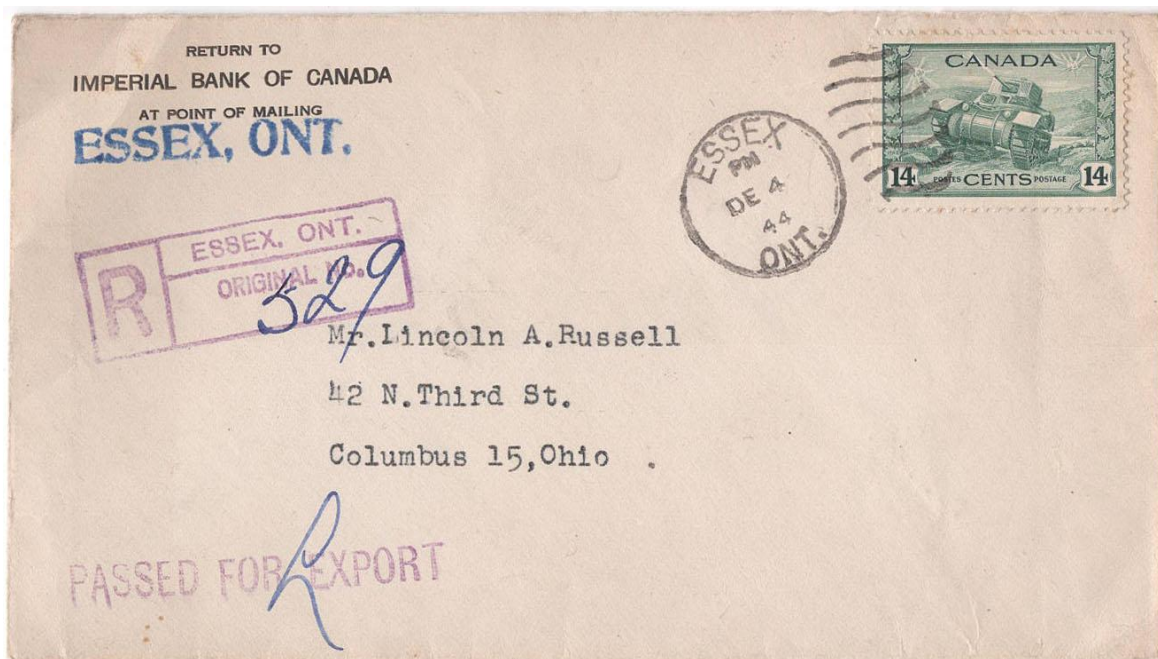 RETURN TO
IMPERIAL BANK OF CANADA
AT POINT OF MAILING
ESSEX, ONT.
CANADA
14 POSTES CENTS POSTAGE 14
ESSEX
PM
DE 4
44
ONT.
R
ESSEX, ONT.
ORIGINAL No.
529
Mr.Lincoln A.Russell
42 N.Third St.
Columbus 15,Ohio .
PASSED FOR EXPORT